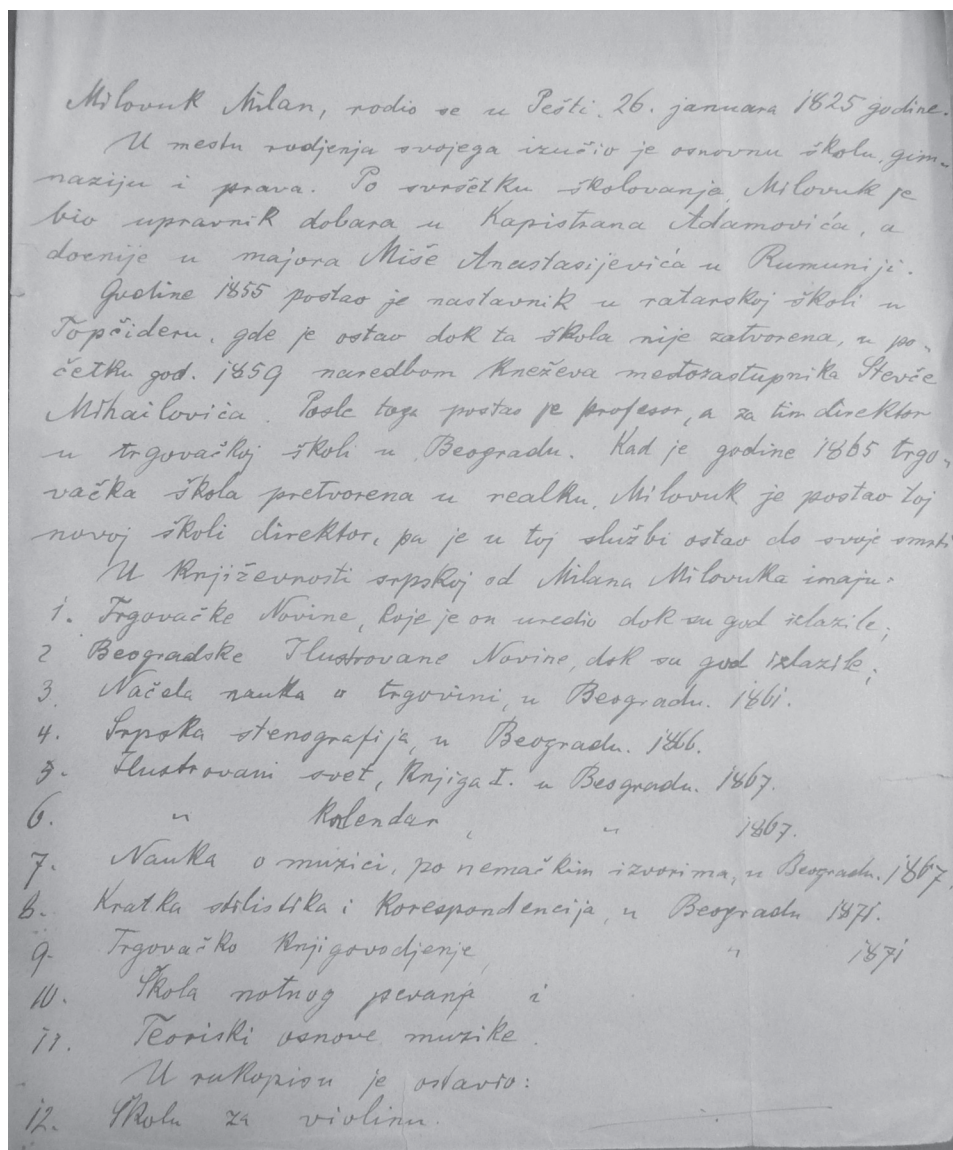 Milovuk Milan, rodio se u Pešti. 26. januara 1825 godine.
U mestu rodjenja svojega izučio je osnovnu školu, gim-
naziju i prava. Po svršetku školovanja, Milovuk je
bio upravnik dobara u Kapistrana Adamovića, a
docnije u majora Miše Anastasijevića u Rumuniji.
Godine 1855 postao je nastavnik u ratarskoj školi u
Topčideru, gde je ostao dok ta škola nije zatvorena, u po-
četku god. 1859 naredbom Kneževa mestozastupnika Stevče
Mihailovića. Posle toga postao je profesor, a za tim direktor
u trgovačkoj školi u Beogradu. Kad je godine 1865 trgo-
vačka škola pretvorena u realku, Milovuk je postao toj
novoj školi direktor, pa je u toj službi ostao do svoje smrti
U Književnosti srpskoj od Milana Milovuka imaju:
1. Trgovačke Novine, koje je on uredio dok su god izlazile;
2 Beogradske Ilustrovane Novine, dok su god izlazile;
3. Načela nauka o trgovini, u Beogradu. 1861.
4. Srpska stenografija, u Beogradu. 1866.
5. Ilustrovani svet, Knjiga I. u Beogradu. 1867.
6. " Kalendar, " 1867.
7. Nauka o muzici, po nemačkim izvorima, u Beogradu. 1867.
8. Kratka stilistika i Korespondencija, u Beogradu 1871.
9. Trgovačko Knjigovodjenje, " 1871
10. Škola notnog pevanja i
11. Teoriski osnove muzike.
U rukopisu je ostavio:
12. Školu za violinu.